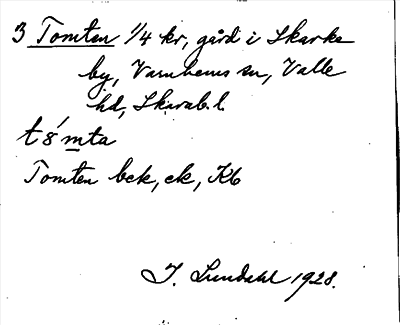 3 Tomten 1/4 kr, gård i Skarke
by, Varnhems sn, Valle
hd, Skarab.l.
t8́mta
Tomten bck, ek, Kb
I. Lundahl 1928.